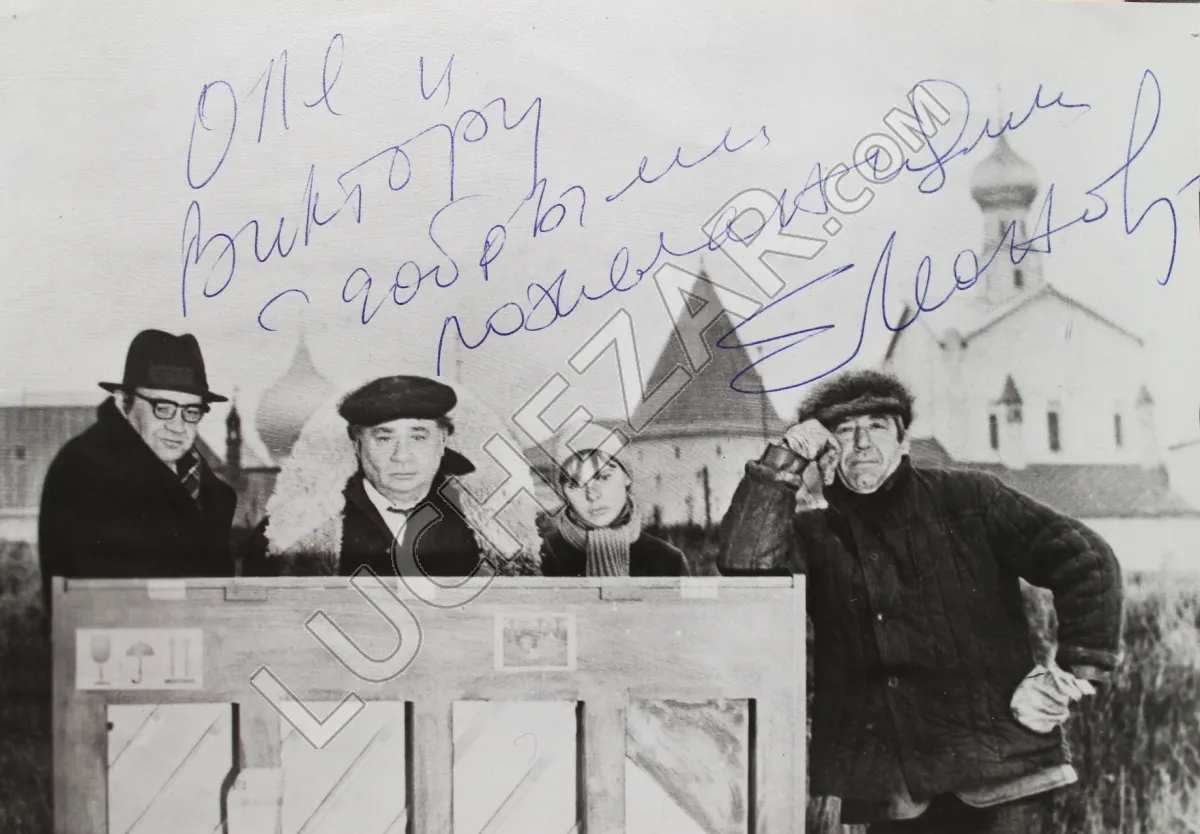 Оле и
Виктору
с добрыми
пожеланиями
ЕЛеонов
LUCHEZAR.COM